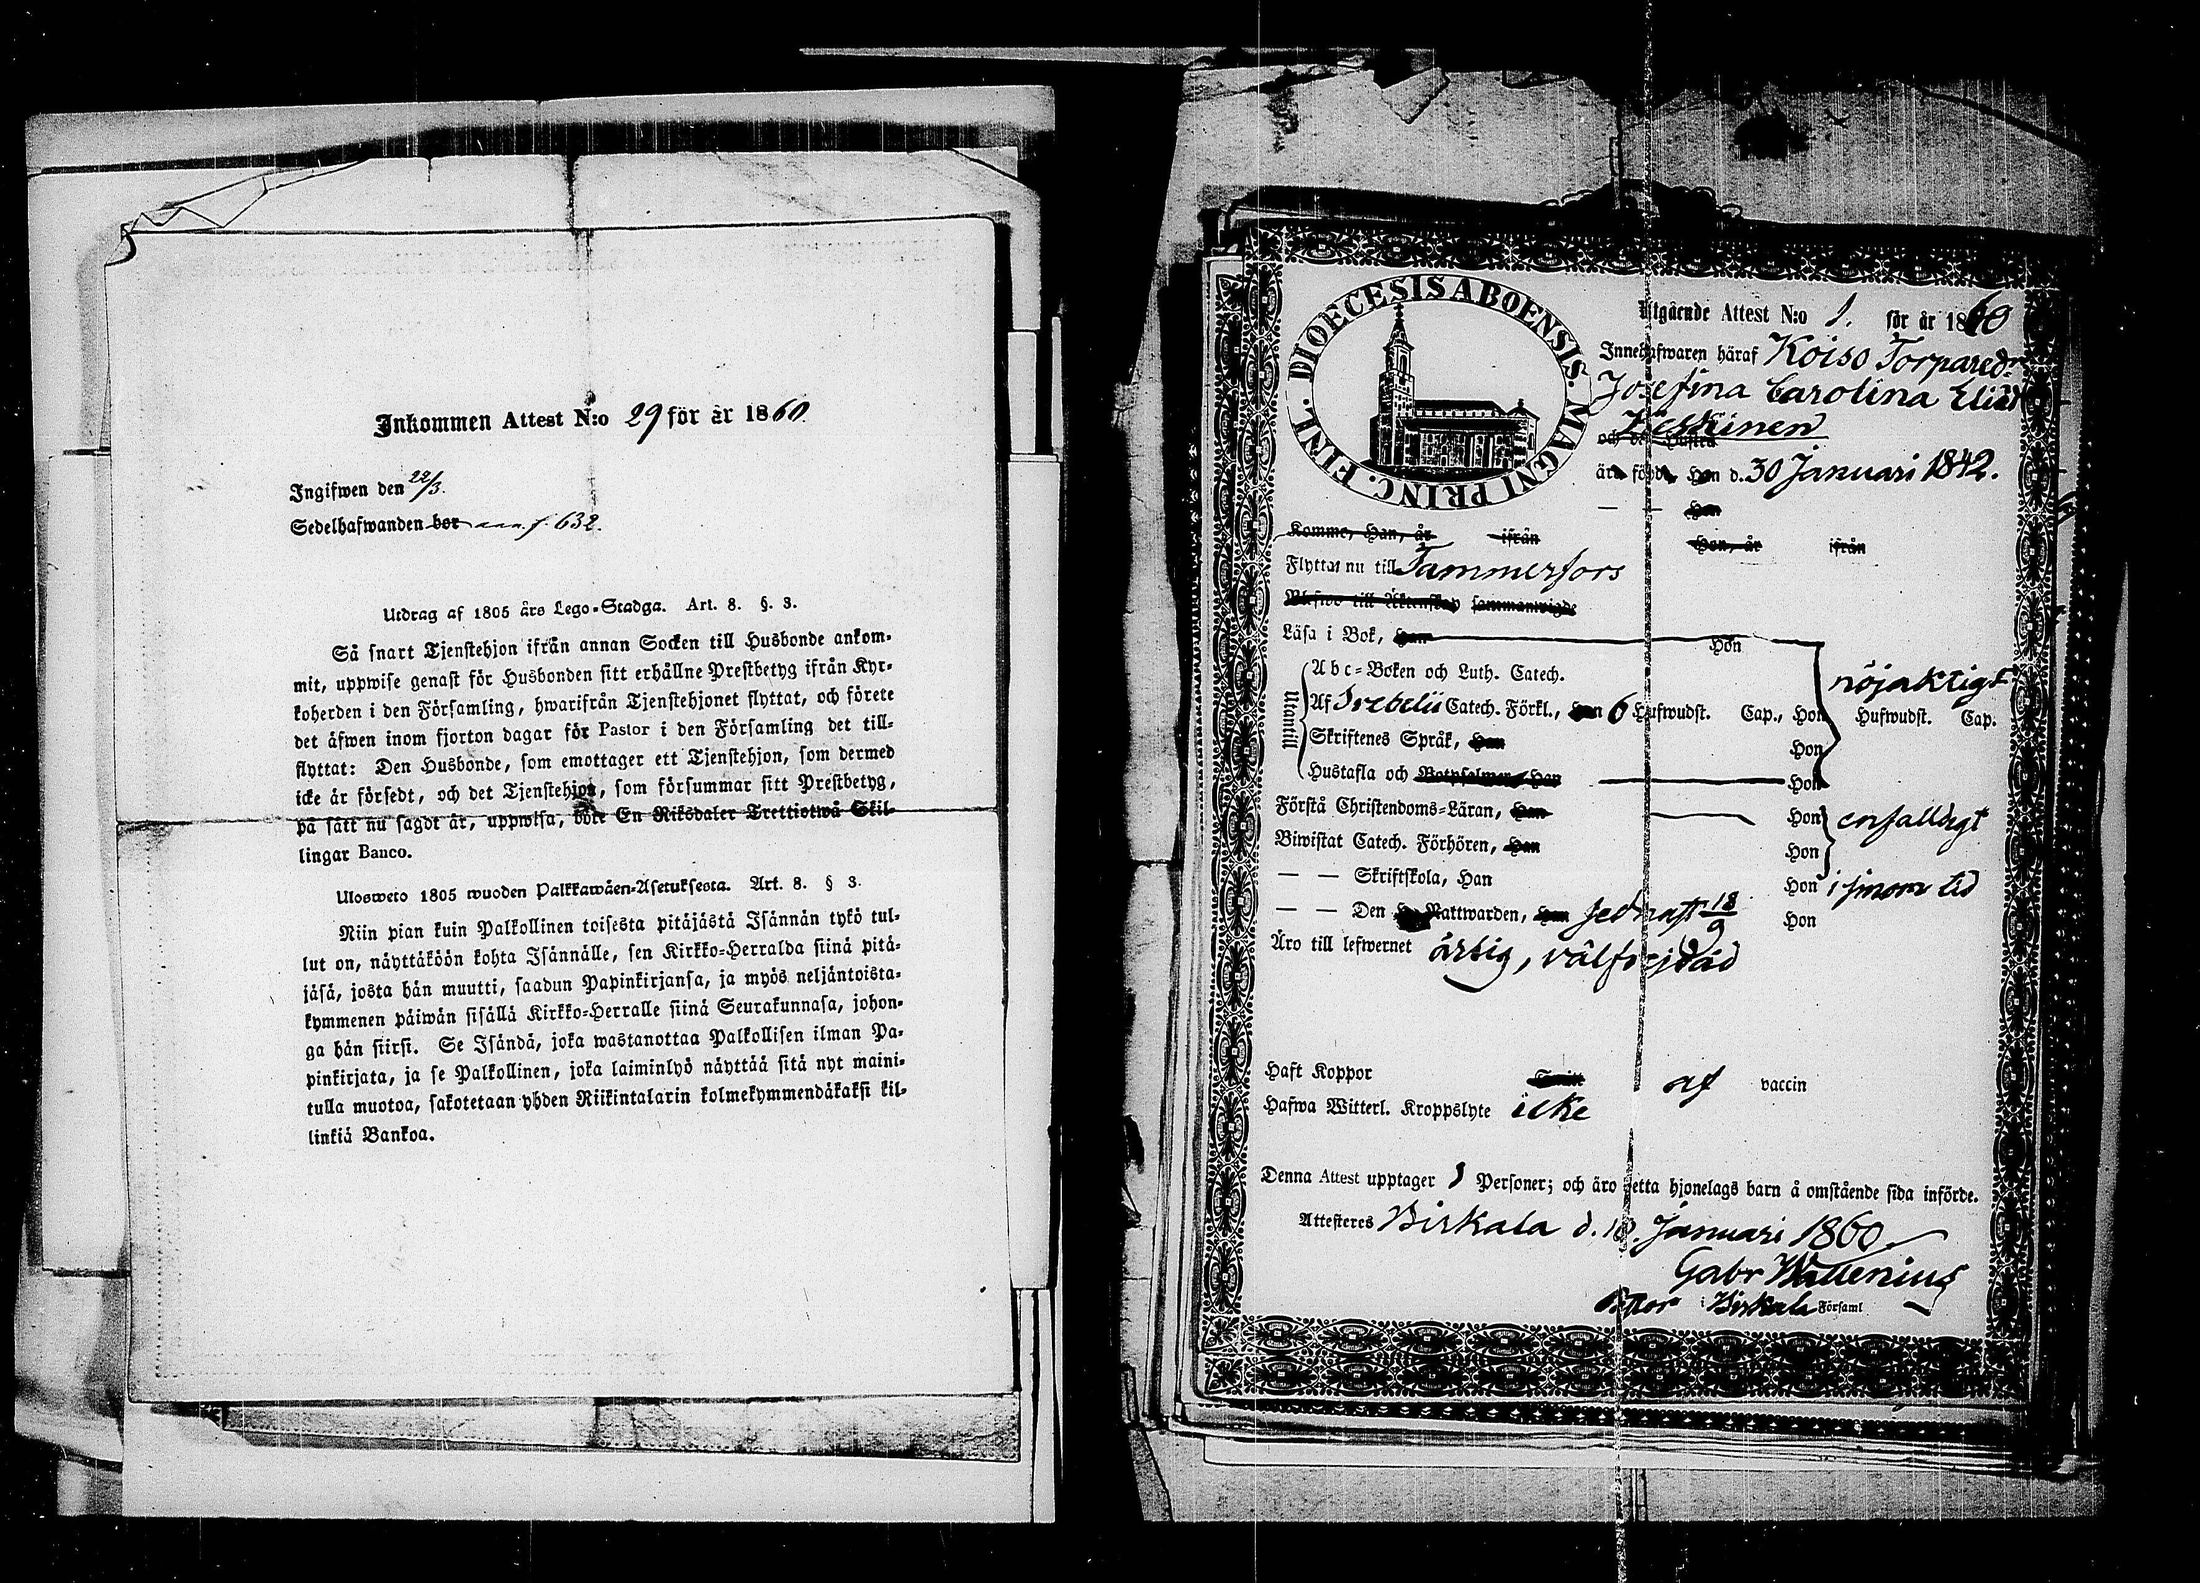 Inkommen Attest N:o 29 för år 1860.
Ingifwen den 22/3.
Sedelhafwanden bor f. 632.
Utdrag af 1805 års Lego-Stadga. Art. 8. §. 3.
Så snart Tjenstehjon ifrån annan Socken till Husbonde ankom-
mit, uppwise genast för Husbonden sitt erhållne Prestbetyg ifrån Kyr-
koherden i den Församling, hwarifrån Tjenstehjonet flyttat, och förete
det äfwen inom fjorton dagar för Pastor i den Församling det till-
flyttat: Den Husbonde, som emottager ett Tjenstehjon, som dermed
icke är försedt, och det Tjenstehjon, som försummar sitt Prestbetyg,
på sätt nu sagdt är, uppwisa, böte En Riksdaler Trettiotwå Skil-
lingar Banco.
Ulosweto 1805 wuoden Palkkawäen-Asetuksesta. Art. 8. § 3.
Niin pian kuin Palkollinen toisesta pitäjästä Isännän tykö tul-
lut on, näyttäköön kohta Isännälle, sen Kirkko-Herralda siinä pitä-
jäsä, josta hän muutti, saadun Papinkirjansa, ja myös neljäntoista-
kymmenen päiwän sisällä Kirkko-Herralle siinä Seurakunnasa, johon-
ga hän siirsi. Se Isändä, joka wastanottaa Palkollisen ilman Pa-
pinkirjata, ja se Palkollinen, joka laiminlyö näyttää sitä nyt maini-
tulla muotoa, sakotetaan yhden Riikintalarin kolmekymmendäkaksi kil-
linkiä Bankoa.
DIOECESIS ABOENSIS. MAGNI PRINC. FINL.
Utgående Attest N:o 1. för år 1860
Innehafwaren häraf Koiso Torparedr.
Josefina Carolina Eliäs
Keskinen
och des Hustru
äro född, Hon d. 30 Januari 1842.
— — Hon
Komme, Han, år ifrån Hon, år ifrån
Flyttat nu till Tammerfors
Blefwo till Äktenskap sammanwigde
Läsa i Bok, Han Hon
Utantill
Abc-Boken och Luth. Catech. nöjaktigt
Af Svebelii Catech. Förkl., Han 6 Hufwudst. Cap., Hon Hufwudst. Cap.
Skriftenes Språk, Han Hon
Hustafla och Botpsalmer, Han Hon
Förstå Christendoms-Läran, Han Hon enfalldigt
Biwistat Catech. Förhören, Han Hon
— — Skriftskola, Han Hon i sinom tid
— — Den H. Nattwarden, Han sednast 18/9 Hon
Äro till lefwernet ärlig, välfrejdad
Haft Koppor af vaccin
Hafwa Witterl. Kroppslyte icke
Denna Attest upptager 1 Personer; och äro detta hjonelags barn å omstående sida införde.
Attesteres Birkala d. 10. Januari 1860
Gabr Wallenius
Pastor i Birkala Församl